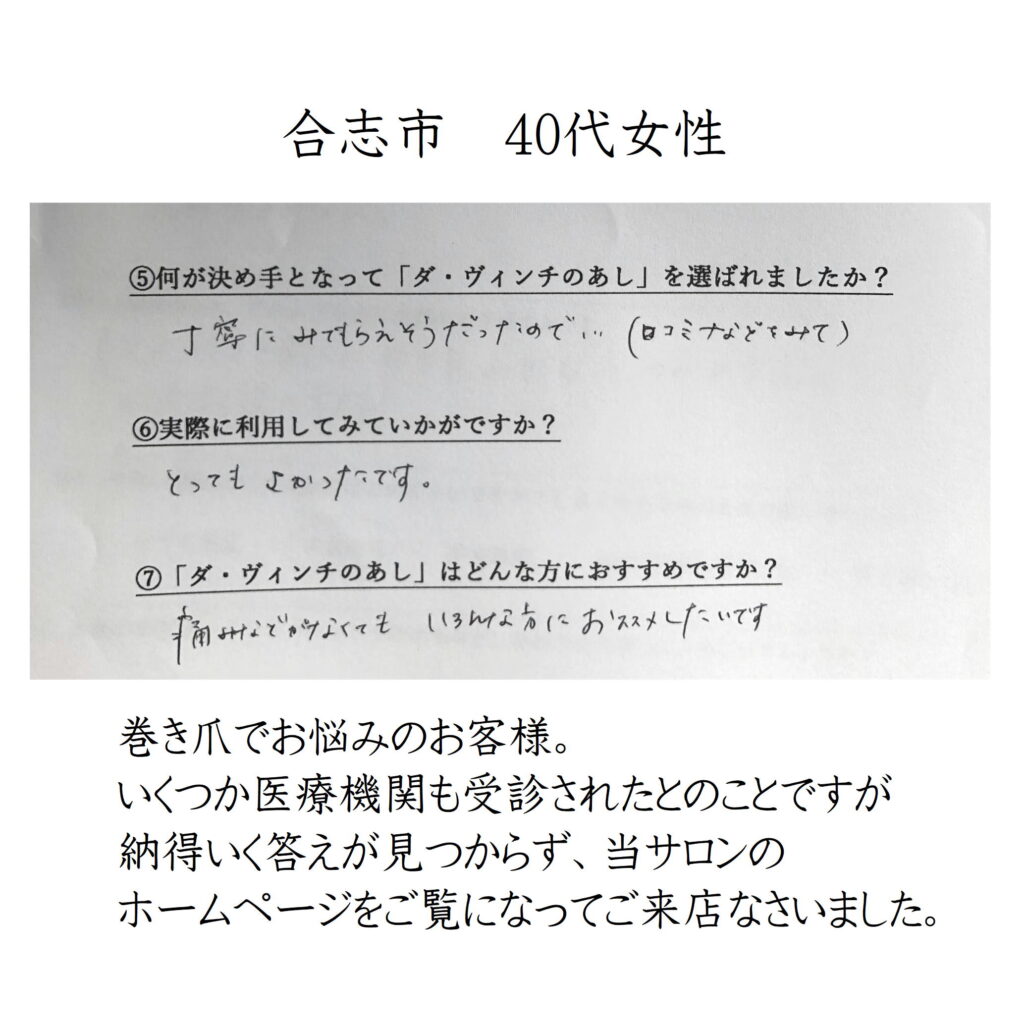 合志市　40代女性
⑤何が決め手となって「ダ・ヴィンチのあし」を選ばれましたか？
丁寧にみてもらえそうだったので… (口コミなどをみて)
⑥実際に利用してみていかがですか？
とってもよかったです。
⑦「ダ・ヴィンチのあし」はどんな方におすすめですか？
痛みなどがなくても いろんな方に おススメしたいです
巻き爪でお悩みのお客様。
いくつか医療機関も受診されたとのことですが
納得いく答えが見つからず、当サロンの
ホームページをご覧になってご来店なさいました。